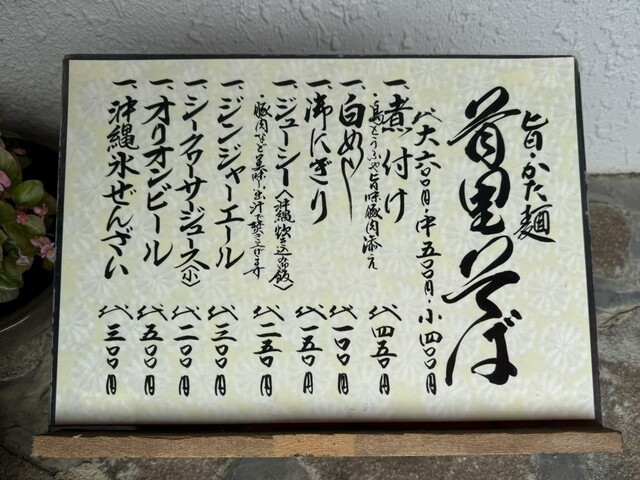 旨・かた麺
首里そば
代 大 六〇〇円・中 五〇〇円・小 四〇〇円
一、煮付け 代 四五〇円
・島どうふや旨味豚肉添え
一、白めし 代 一〇〇円
一、御にぎり 代 一五〇円
一、ジューシー〈沖縄炊き込み御飯〉 代 二五〇円
・豚肉など美味し出汁で焚き上げます
一、ジンジャーエール 代 三〇〇円
一、シークワーサージュース〈小〉 代 二〇〇円
一、オリオンビール 代 五〇〇円
一、沖縄氷ぜんざい 代 三〇〇円